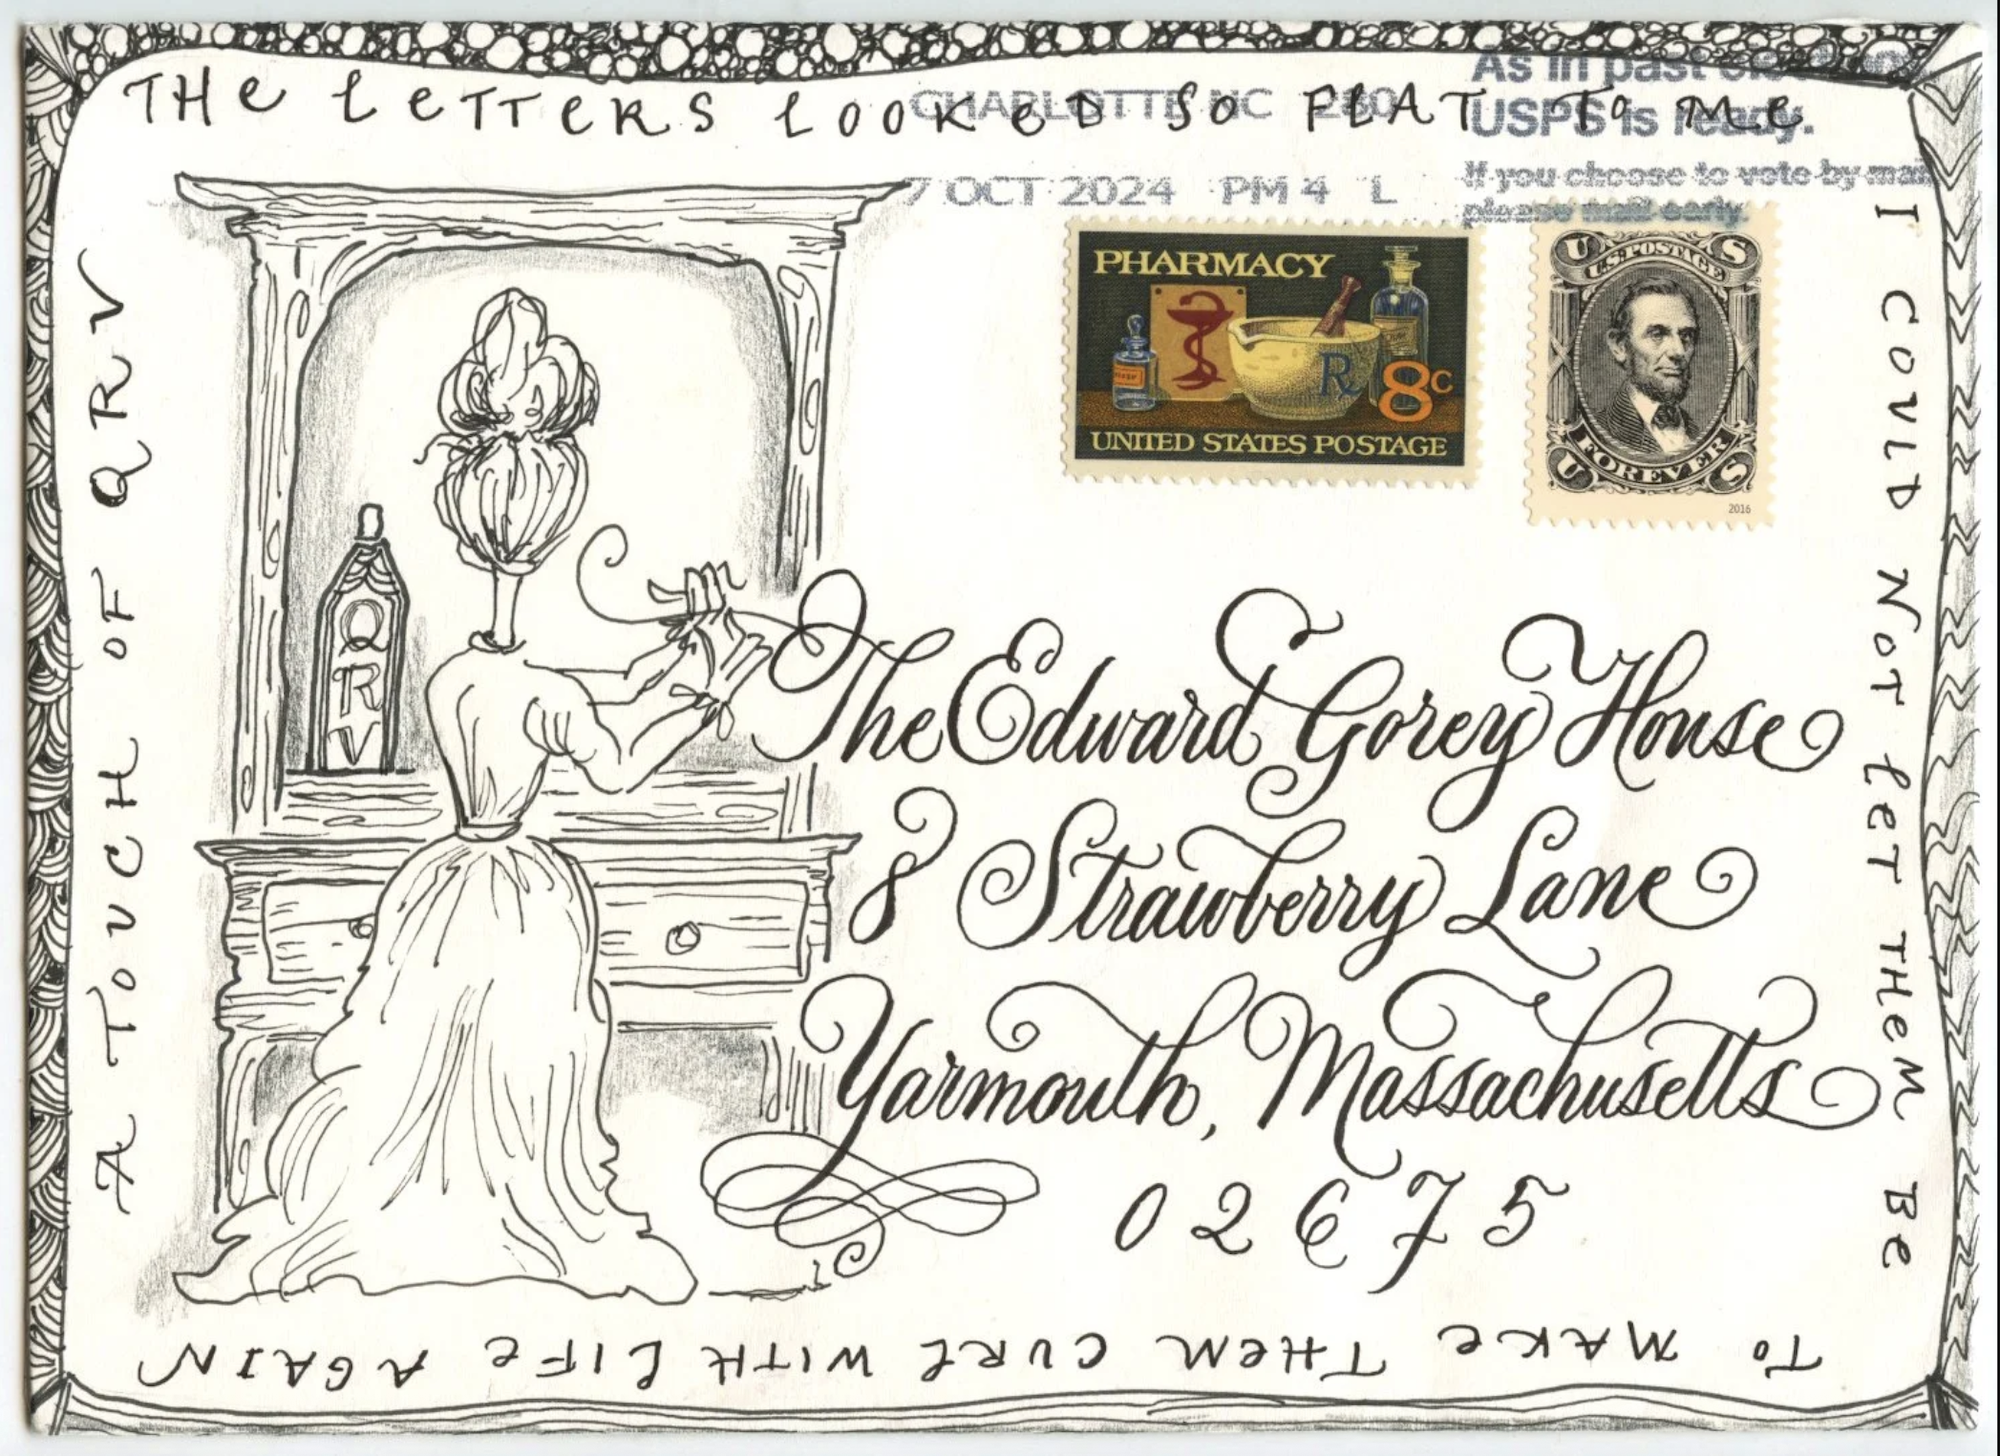 THE LETTERS LOOKED SO FLAT TO ME
I COULD NOT LET THEM BE
TO MAKE THEM CURL WITH LIFE AGAIN
A TOUCH OF QRV
CHARLOTTE NC 280
7 OCT 2024 PM 4 L
As in past
USPS is ready.
If you choose to vote by mail
please mail early.
PHARMACY
Rx
8c
UNITED STATES POSTAGE
U S
U.S. POSTAGE
FOREVER
U S
2016
Q
R
V
The Edward Gorey House
8 Strawberry Lane
Yarmouth, Massachusetts
02675